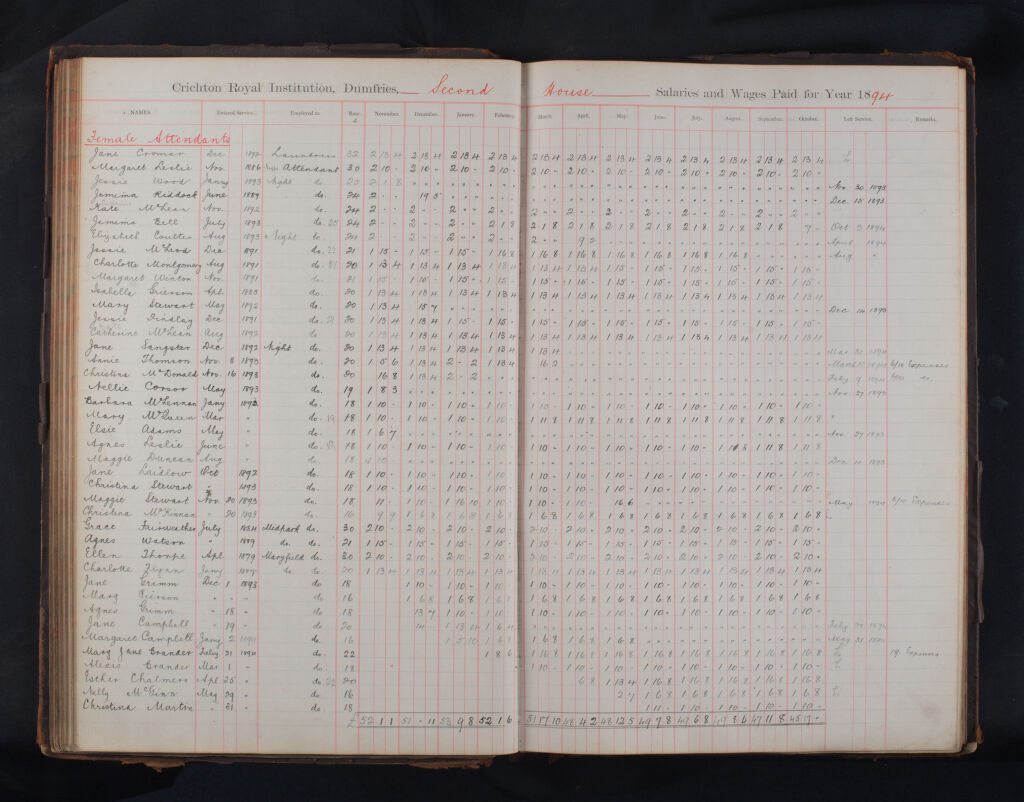 Crichton Royal Institution, Dumfries, Second House Salaries and Wages Paid for Year 1894
NAMES. Entered Service. Employed as Rate. November. December. January. February. March. April. May. June. July. August. September. October. Left Service. Remarks.
£
Female Attendants
Jane Cromar Dec 1892 Laundress 32 2 13 4 2 13 4 2 13 4 2 13 4 2 13 4 2 13 4 2 13 4 2 13 4 2 13 4 2 13 4 2 13 4 2 13 4
Margaret Leslie Nov. 1886 Attendant 30 2 10 - 2 10 - 2 10 - 2 10 - 2 10 - 2 10 - 2 10 - 2 10 - 2 10 - 2 10 - 2 10 - 2 10 -
Jessie Wood Jany 1893 Night do. 20 2 1 8 Nov 30 1893
Jemima Riddoch June 1889 do. 24 2 - - 19 5 Dec 15 1893
Kate McLean Nov. 1892 do. 24 2 - - 2 - - 2 - - 2 - - 2 - - 2 - - 2 - - 2 - - 2 - - 2 - - 2 - - 2 - -
Jemima Bell July 1893 do. 25 24 2 - - 2 - - 2 - - 2 1 8 2 1 8 2 1 8 2 1 8 2 1 8 2 1 8 2 1 8 2 1 8 7 - Oct 5 1894
Elizabeth Coulter Aug 1893 Night do. 24 2 - - 2 - - 2 - - 2 - - 2 - - 9 2 April 1894
Jessie McLeod Dec 1891 do. 22 21 1 15 - 1 15 - 1 15 - 1 16 8 1 16 8 1 16 8 1 16 8 1 16 8 1 16 8 1 16 8 Aug "
Charlotte Montgomery Aug 1891 do. 21 20 1 13 4 1 13 4 1 13 4 1 13 4 1 13 4 1 13 4 1 15 - 1 15 - 1 15 - 1 15 - 1 15 - 1 15 -
Margaret Winton Nov. 1891 do. 21 1 15 - 1 15 - 1 15 - 1 15 - 1 15 - 1 15 - 1 15 - 1 15 - 1 15 - 1 15 - 1 15 - 1 15 -
Isabella Grierson Apl. do. 20 1 13 4 1 13 4 1 13 4 1 13 4 1 13 4 1 13 4 1 13 4 1 13 4 1 13 4 1 13 4 1 13 4 1 13 4
Mary Stewart May 1892 do. 20 1 13 4 15 7 Dec 14 1893
Jessie Findlay Dec 1891 do. 21 20 1 13 4 1 13 4 1 15 - 1 15 - 1 15 - 1 15 - 1 15 - 1 15 - 1 15 - 1 15 - 1 15 - 1 15 -
Catherine McLean Aug 1892 do. 20 1 13 4 1 13 4 1 13 4 1 13 4 1 13 4 1 13 4 1 13 4 1 13 4 1 13 4 1 13 4 1 13 4 1 13 4
Jane Sangster Dec 1892 Night do. 20 1 13 4 1 13 4 1 13 4 1 13 4 1 13 4 Mar 31 1894
Annie Thomson Nov. 8 1893 do. 20 1 5 6 1 13 4 2 - 2 1 13 4 16 2 March 1894 Expenses
Christina McDonald Nov. 16 1893 do. 20 16 8 1 13 4 2 - 2 Feby 7 1894 do.
Nellie Corson May 1893 do. 19 1 8 3 Nov 27 1893
Barbara McLennan Jany 1892 do. 18 1 10 - 1 10 - 1 10 - 1 10 - 1 10 - 1 10 - 1 10 - 1 10 - 1 10 - 1 10 - 1 10 - 1 10 -
Mary McQueen Mar " do. 19 18 1 10 - 1 10 - 1 10 - 1 10 - 1 11 8 1 11 8 1 11 8 1 11 8 1 11 8 1 11 8 1 11 8 1 11 8
Elsie Adams May " do. 18 1 6 7 Nov 27 1893
Agnes Leslie June " do. 18 1 10 - 1 10 - 1 10 - 1 10 - 1 10 - 1 10 - 1 10 - 1 10 - 1 10 - 1 11 8 1 11 8 1 11 8
Maggie Duncan Aug " do. 18 Dec 1893
Jane Laidlow Oct 1892 do. 18 1 10 - 1 10 - 1 10 - 1 10 - 1 10 - 1 10 - 1 10 - 1 10 - 1 10 - 1 10 - 1 10 - 1 10 -
Christina Stewart " 1893 do. 18 1 10 - 1 10 - 1 10 - 1 10 - 1 10 - 1 10 - 1 10 - 1 10 - 1 10 - 1 10 - 1 10 - 1 10 -
Maggie Stewart Nov. 20 1893 do. 18 11 - 1 10 - 1 16 10 1 10 - 1 10 - 1 10 - 16 6 May Expenses
Christina McKinnan " 20 1893 do. 16 1 6 8 1 6 8 1 6 8 1 6 8 1 6 8 1 6 8 1 6 8 1 6 8 1 6 8 1 6 8 1 6 8
Grace Fairweather July 1884 Midpark do. 30 2 10 - 2 10 - 2 10 - 2 10 - 2 10 - 2 10 - 2 10 - 2 10 - 2 10 - 2 10 - 2 10 - 2 10 -
Agnes Watson " 1889 do. do. 21 1 15 - 1 15 - 1 15 - 1 15 - 1 15 - 1 15 - 1 15 - 1 15 - 1 15 - 1 15 - 1 15 - 1 15 -
Ellen Thorpe Apl. 1879 Maryfield do. 30 2 10 - 2 10 - 2 10 - 2 10 - 2 10 - 2 10 - 2 10 - 2 10 - 2 10 - 2 10 - 2 10 - 2 10 -
Charlotte Flynn Jany do. do. 20 1 13 4 1 13 4 1 13 4 1 13 4 1 13 4 1 13 4 1 13 4 1 13 4 1 13 4 1 13 4 1 13 4 1 13 4
Jane Grimm Dec 1 1893 do 18 1 10 - 1 10 - 1 10 - 1 10 - 1 10 - 1 10 - 1 10 - 1 10 - 1 10 - 1 10 - 1 10 -
Mary Pierson " " " do 16 1 6 8 1 6 8 1 6 8 1 6 8 1 6 8 1 6 8 1 6 8 1 6 8 1 6 8 1 6 8 1 6 8
Agnes Grimm " 18 " do 18 13 7 1 10 - 1 10 - 1 10 - 1 10 - 1 10 - 1 10 - 1 10 - 1 10 - 1 10 - 1 10 -
Jane Campbell " 19 " do 20 1 13 4 1 6 4 Feby 1894
Margaret Campbell Jany 2 1894 do 16 1 5 10 1 6 8 1 6 8 1 6 8 1 6 8 May 31 1894
Mary Jane Grander Feby 21 1894 do. 22 8 6 1 16 8 1 16 8 1 16 8 1 16 8 1 16 8 1 16 8 1 16 8 1 16 8 Expenses
Alexis Grander Mar 1 " do. 18 1 10 - 1 10 - 1 10 - 1 10 - 1 10 - 1 10 - 1 10 - 1 10 -
Esther Chalmers Apl 25 " do 22 20 6 8 1 13 4 1 16 8 1 16 8 1 16 8 1 16 8 1 16 8
Nelly McGinn May 29 " do. 16 2 7 1 6 8 1 6 8 1 6 8 1 6 8 1 6 8
Christina Martin " 31 " do. 18 1 11 - 1 10 - 1 10 - 1 10 - 1 10 -
£ 52 1 1 51 - 11 53 9 8 52 1 6 51 17 10 48 4 2 48 12 5 49 7 8 49 6 8 49 8 4 47 11 8 45 17 -